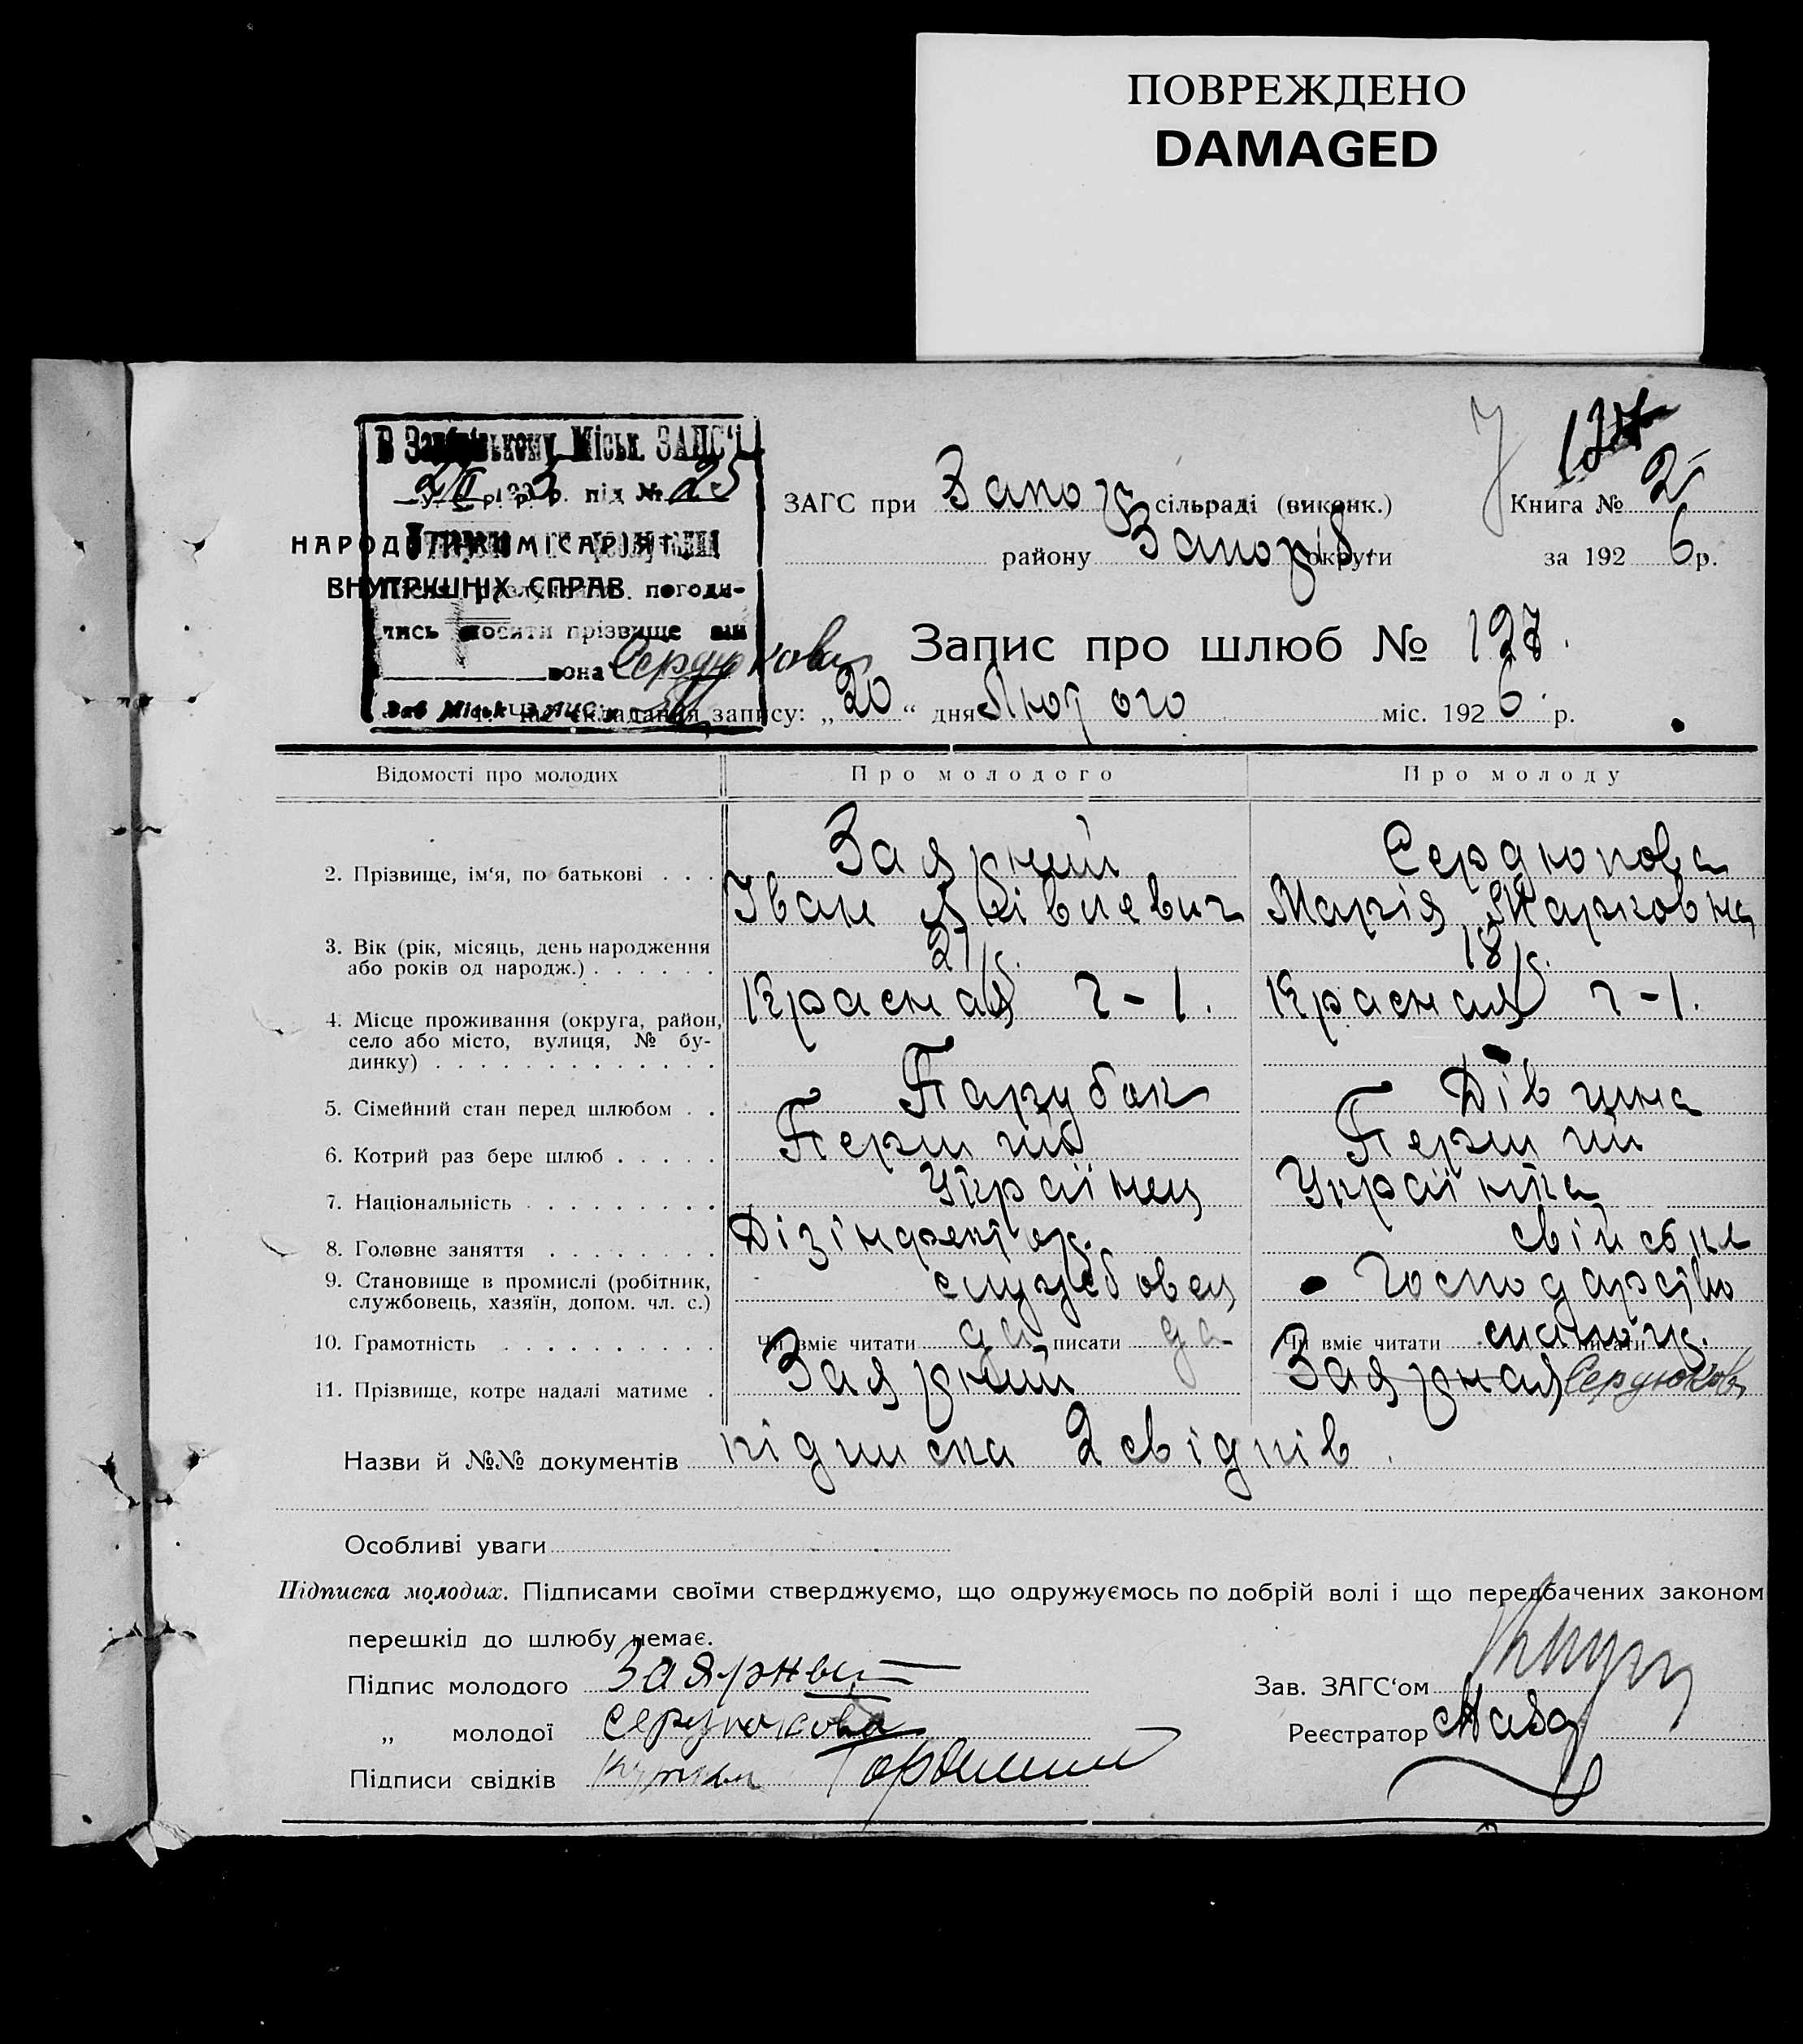 ПОВРЕЖДЕНО
DAMAGED
В Запорізькому Міськ. ЗАПС'і
під № 25
НАРОДНІЙ КОМІСАРІЯТ
ВНУТРІШНІХ СПРАВ
погоди-
лись носити прізвище він
вона Сердюкова
Зав Міськ ЗАПС'у
7 127
ЗАГС при Запоріз сільраді (виконк.) Книга № 2
району Запоріз. округи за 1926 р.
Запис про шлюб № 127.
1. Час складання запису: „20“ дня Лютого міс. 1926 р.
Відомості про молодих Про молодого Про молоду
2. Прізвище, ім'я, по батькові Заярний Сердюкова
Іван Яківлевич Марія Марковна
3. Вік (рік, місяць, день народження або років од народж.) 21 р. 18 р.
4. Місце проживання (округа, район, село або місто, вулиця, № будинку) Красная ч-1. Красная ч-1.
5. Сімейний стан перед шлюбом Парубок Дівчина
6. Котрий раз бере шлюб Перший Перший
7. Національність Українец Українка
8. Головне заняття Дізінфектор.
9. Становище в промислі (робітник, службовець, хазяїн, допом. чл. с.) службовец господарство
10. Грамотність Чи вміє читати да писати да Чи вміє читати писати
11. Прізвище, котре надалі матиме Заярний Заярная Сердюкова
Назви й №№ документів підписка 2 свідків.
Особливі уваги
Підписка молодих. Підписами своїми стверджуємо, що одружуємось по добрій волі і що передбачених законом
перешкід до шлюбу немає.
Підпис молодого Заярный Зав. ЗАГС'ом
„ молодої Сердюкова Реєстратор
Підписи свідків